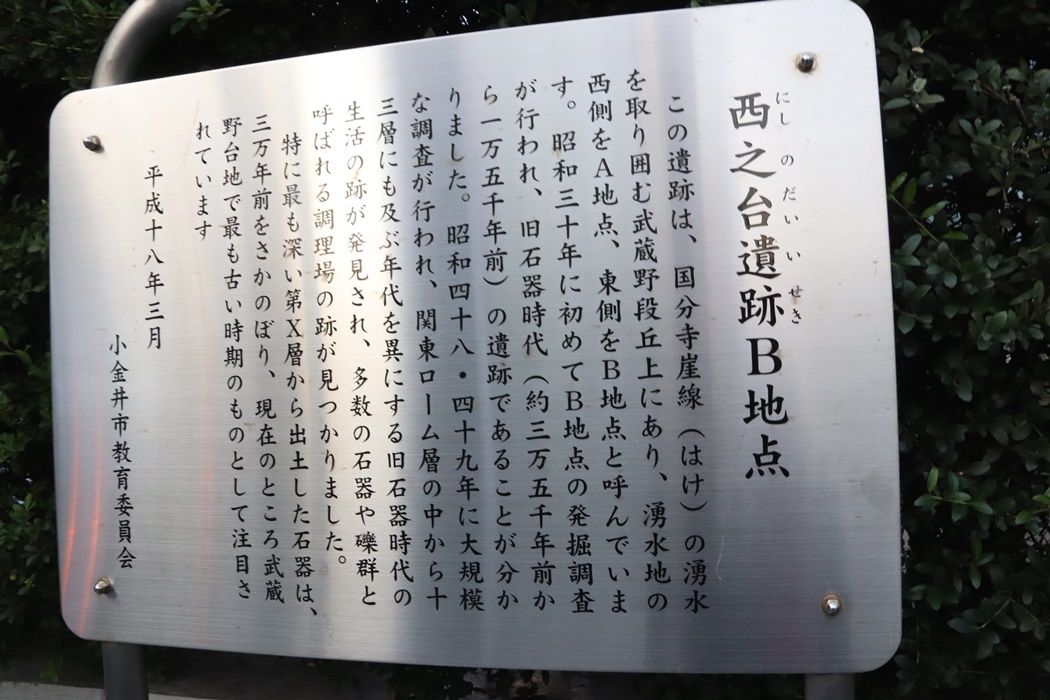 西之台遺跡B地点
にしのだいいせき
この遺跡は、国分寺崖線（はけ）の湧水
を取り囲む武蔵野段丘上にあり、湧水地の
西側をA地点、東側をB地点と呼んでいま
す。昭和三十年に初めてB地点の発掘調査
が行われ、旧石器時代（約三万五千年前か
ら一万五千年前）の遺跡であることが分か
りました。昭和四十八・四十九年に大規模
な調査が行われ、関東ローム層の中から十
三層にも及ぶ年代を異にする旧石器時代の
生活の跡が発見され、多数の石器や礫群と
呼ばれる調理場の跡が見つかりました。
特に最も深い第X層から出土した石器は、
三万年前をさかのぼり、現在のところ武蔵
野台地で最も古い時期のものとして注目さ
れています
平成十八年三月
小金井市教育委員会